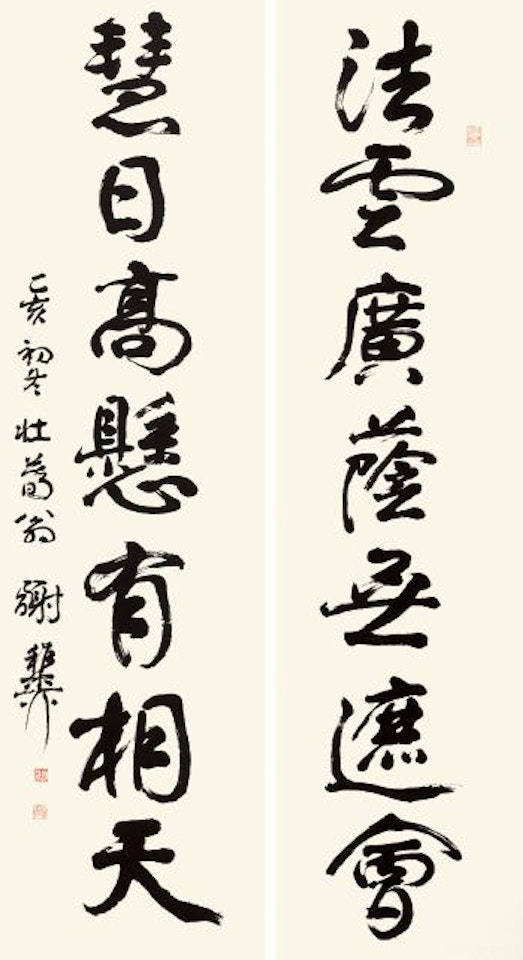 法雲廣蔭無遮會
慧日高懸有相天
乙亥初冬壮暮翁謝稚柳